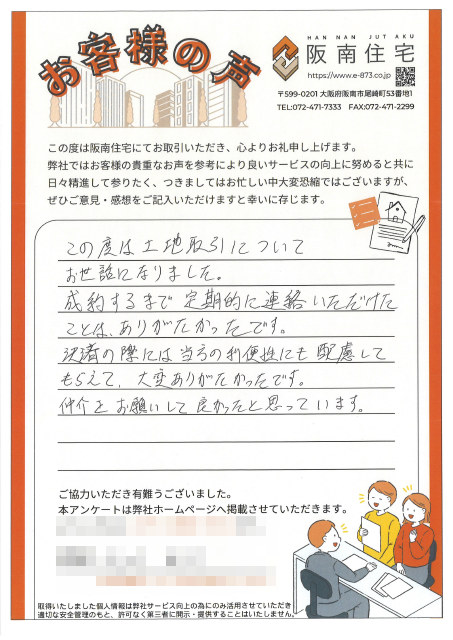 お客様の声
HAN NAN JUTAKU
阪南住宅
https://www.e-873.co.jp
〒599-0201 大阪府阪南市尾崎町53番地1
TEL:072-471-7333 FAX:072-471-2299
この度は阪南住宅にてお取引いただき、心よりお礼申し上げます。
弊社ではお客様の貴重なお声を参考により良いサービスの向上に努めると共に
日々精進して参りたく、つきましてはお忙しい中大変恐縮ではございますが、
ぜひご意見・感想をご記入いただけますと幸いに存じます。
この度は土地取引について
お世話になりました。
成約するまで定期的に連絡いただけた
ことは、ありがたかったです。
決済の際には当方の利便性にも配慮して
もらえて、大変ありがたかったです。
仲介をお願いして良かったと思っています。
ご協力いただき有難うございました。
本アンケートは弊社ホームページへ掲載させていただきます。
取得いたしました個人情報は弊社サービス向上の為にのみ活用させていただき
適切な安全管理のもと、許可なく第三者に開示・提供することはいたしません。